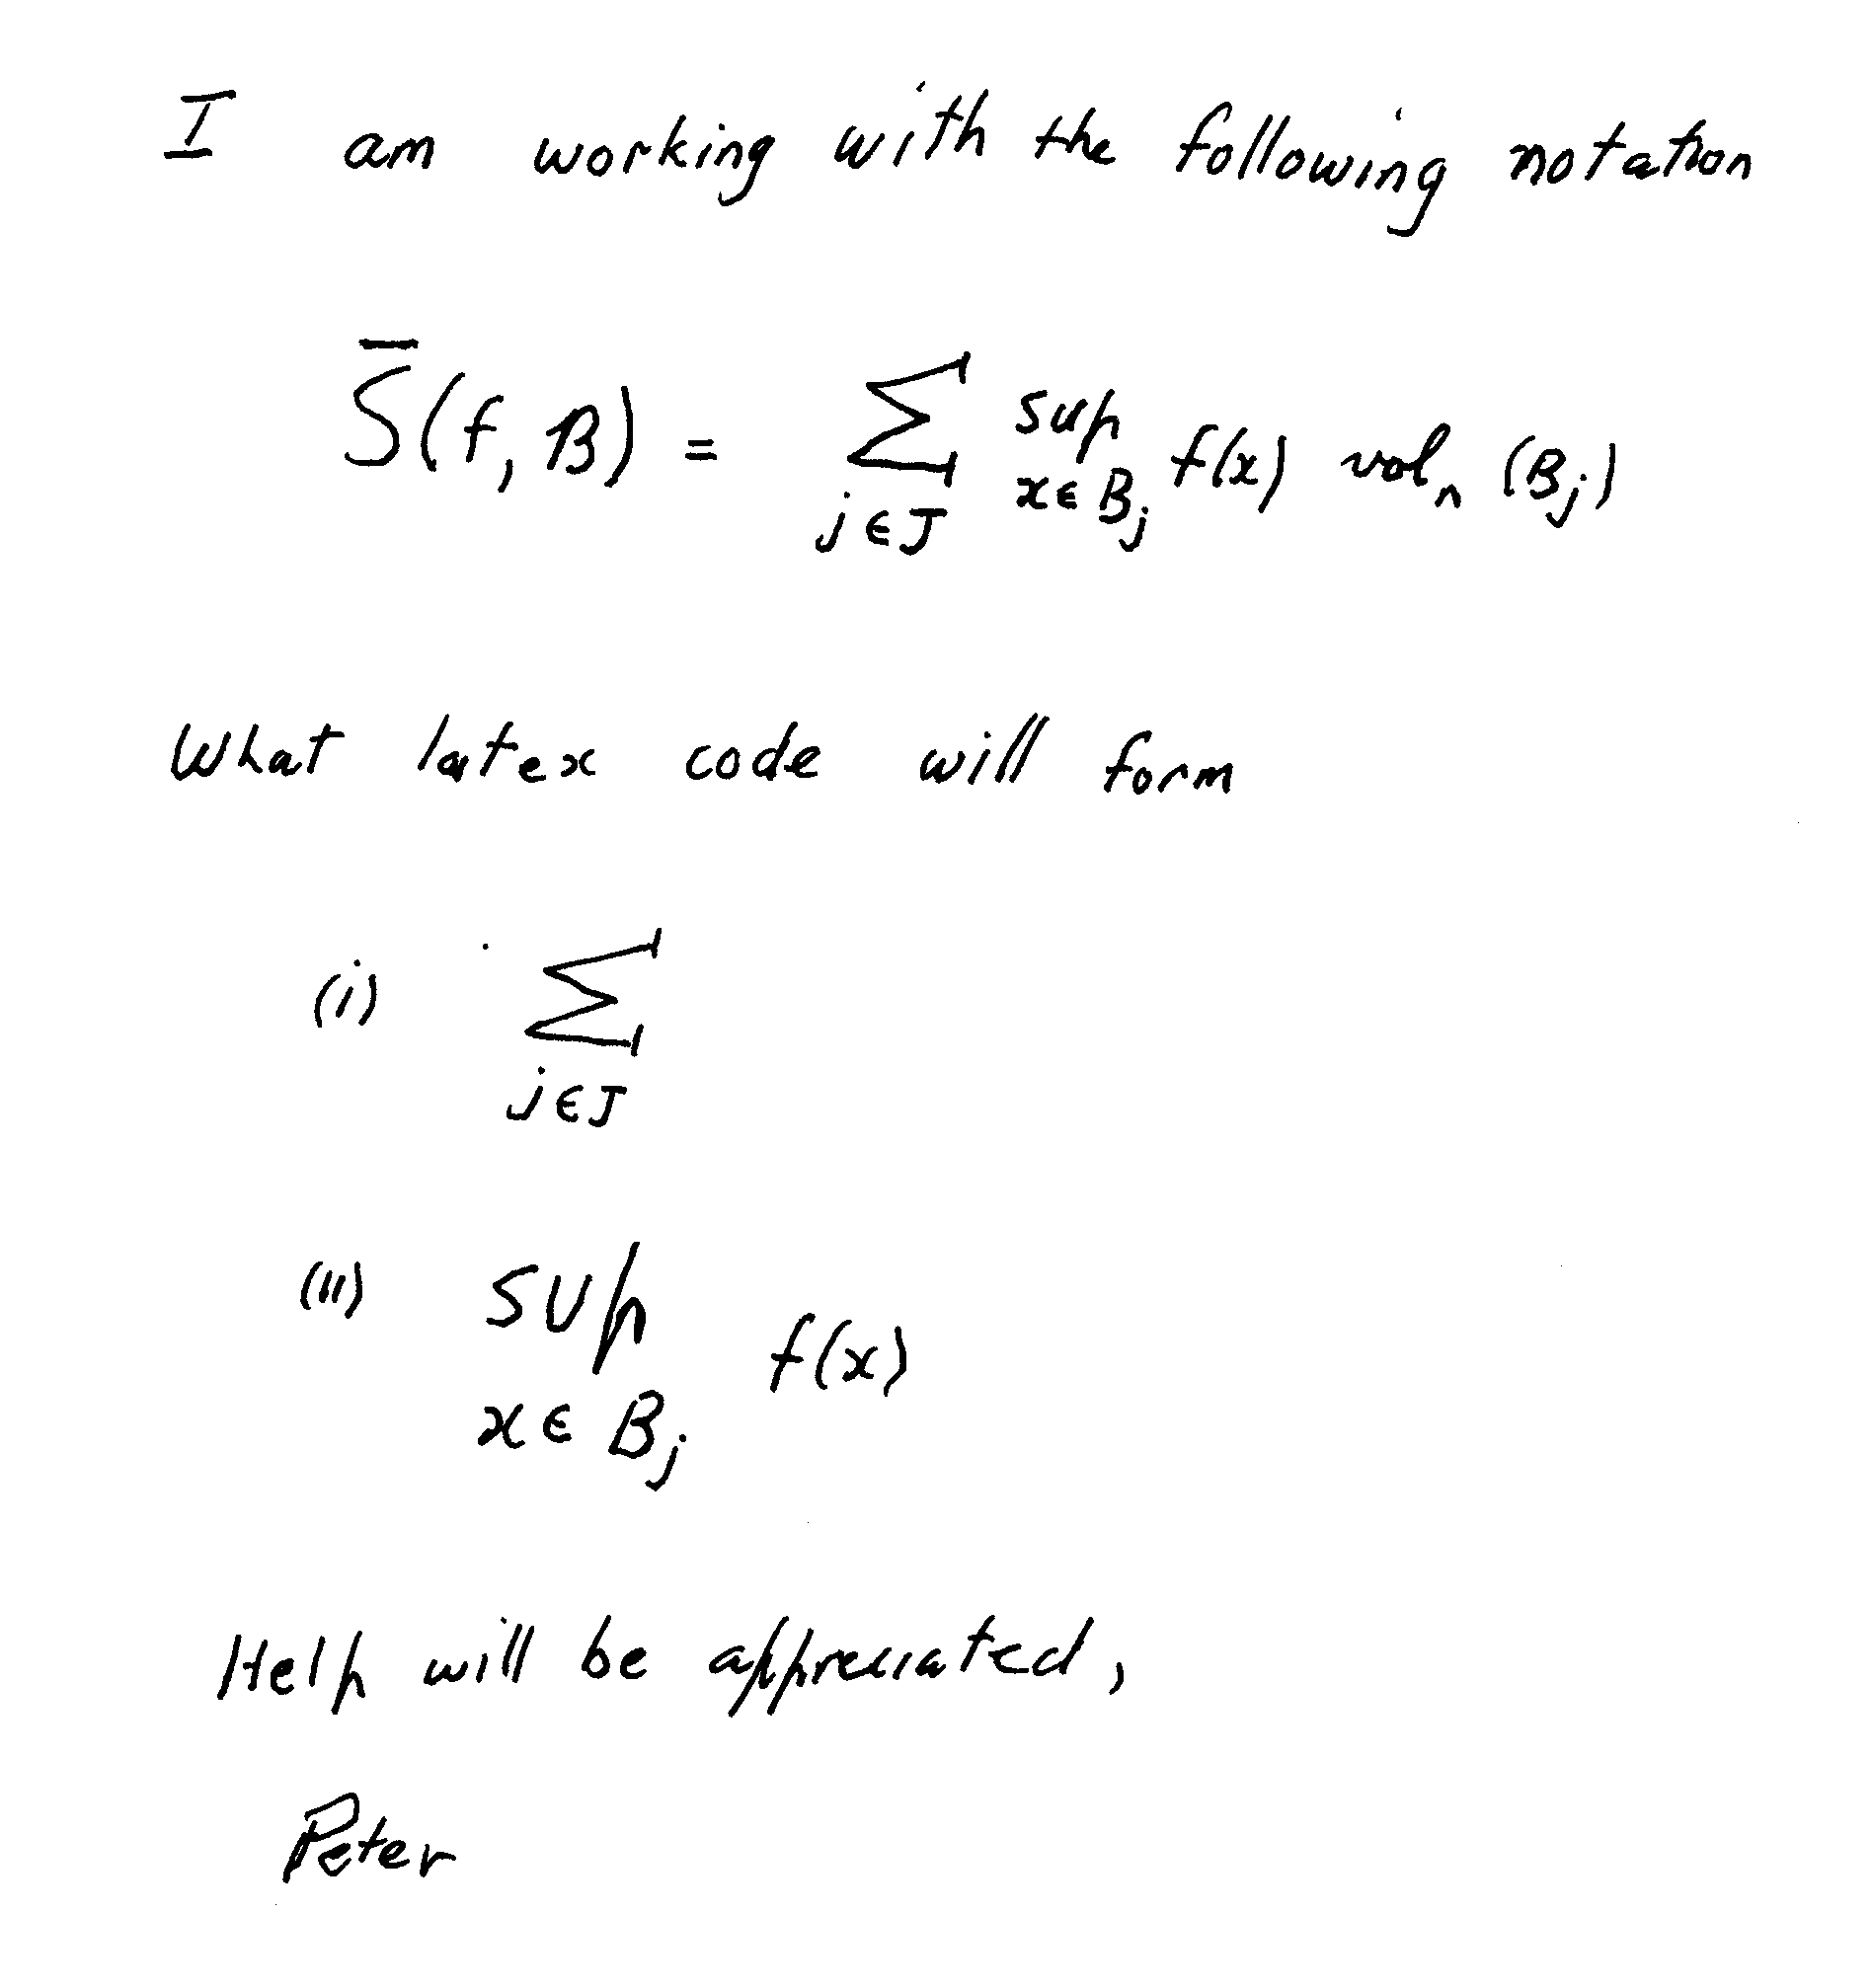 I am working with the following notation
S̅(f, ℬ) = ∑_{j∈J} sup_{x∈B_j} f(x) vol_n (B_j)
What latex code will form
(i) ∑_{j∈J}
(ii) sup_{x∈B_j} f(x)
Help will be appreciated,
Peter